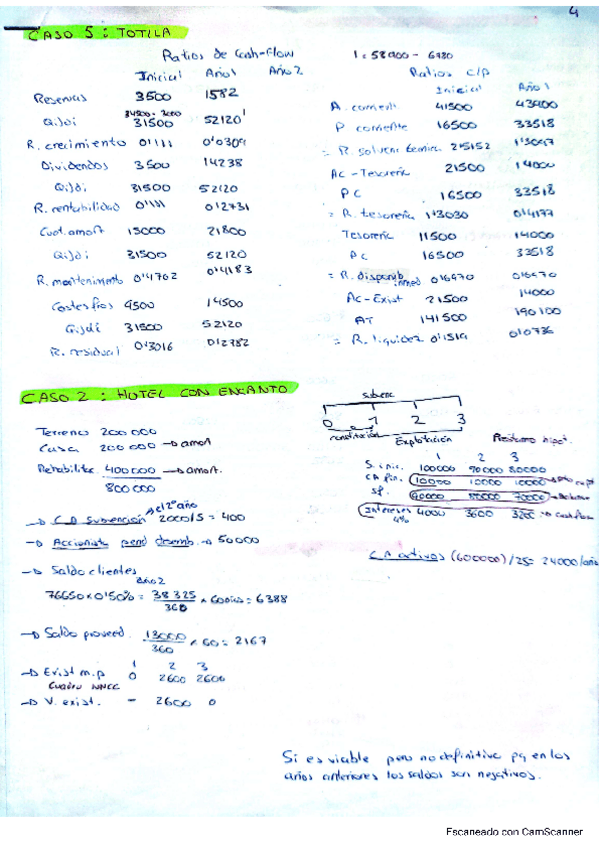 4
CASO 5 : TOTILA
Ratios de Cash-Flow
1 = 58900 - 6780
Inicial Año 1 Año 2
Reservas 3500 1582
31500 52120
R. crecimiento 0'111 0'0304
Dividendos 3500 14238
31500 52120
R. rentabilidad 0'111 0'2731
Cuot. amort 15000 21800
31500 52120
R. mantenimiento 0'4762 0'4183
Costes fijos 9500 14500
31500 52120
R. residual 0'3016 0'2782
Ratios c/p
Inicial Año 1
A. corriente 41500 43900
P corriente 16500 33518
= R. solven. técnica 2'5152 1'3097
Ac - Tesorería 21500 14000
PC 16500 33518
= R. tesorería 1'3030 0'4177
Tesorería 11500 14000
PC 16500 33518
= R. disponib. inmed 0'6970
Ac - Exist 21500 14000
AT 141500 190100
= R. liquidez 0'1519 0'0736
CASO 2 : HOTEL CON ENCANTO
Terreno 200 000
Casa 200 000 → amort
Rehabilitac 400 000 → amort.
800 000
→ C D Subvención el 2º año 2000/5 = 400
→ Accionista pend desemb. → 50000
→ Saldo clientes
Año 2
76650 x 0'50% = 38 325 / 360 x 60 días = 6388
→ Saldo proveed. 13000 / 360 x 60 = 2167
1 2 3
→ Exist m.p 0 2600 2600
→ V. exist. - 2600 0
Subvenc
0 1 2 3
constitución Explotación
Préstamo hipot.
1 2 3
S. inic. 100000 90000 80000
10000 10000 10000
S.f. 90000 80000 70000
Intereses 4% 4000 3600 3200 → Cashflow
C A activos (600000)/25 = 24000/año
Si es viable pero no definitivo pq en los
años anteriores los saldos son negativos.
Escaneado con CamScanner